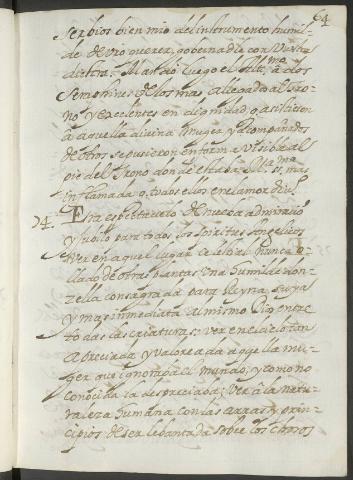 64
Ser bios bien mio del instrumento humil-
de de vro querer, gobernadle con vuestra
diestra. Mandó luego el Altmo a dos
Seraphines de los mas allegados al tro-
no y excelentes en dignidad, q asistiesen
a aquella divina muger, y acompañados
de otros se pusieron en forma visible al
pie del trono donde estaba M. SS. mas
inflamada q. todos ellos en el amor diuio.
74. Era espectaculo de nueba admiracio
y jubilo para todos los spiritus Angelicos
ver en aquel lugar celestial nunca o-
llado de otras plantas una humilde don-
zella consagrada para Reyna suya
y mas inmediata al mismo Dios entre
todas las criaturas: ver en el cielo tan
apreciada y valoreada aquella mu-
ger que ignoraba el mundo, y como no
conocida la despreciaba: ver a la natu-
raleza humana con las arras y prin-
cipios de ser lebantada sobre los choros